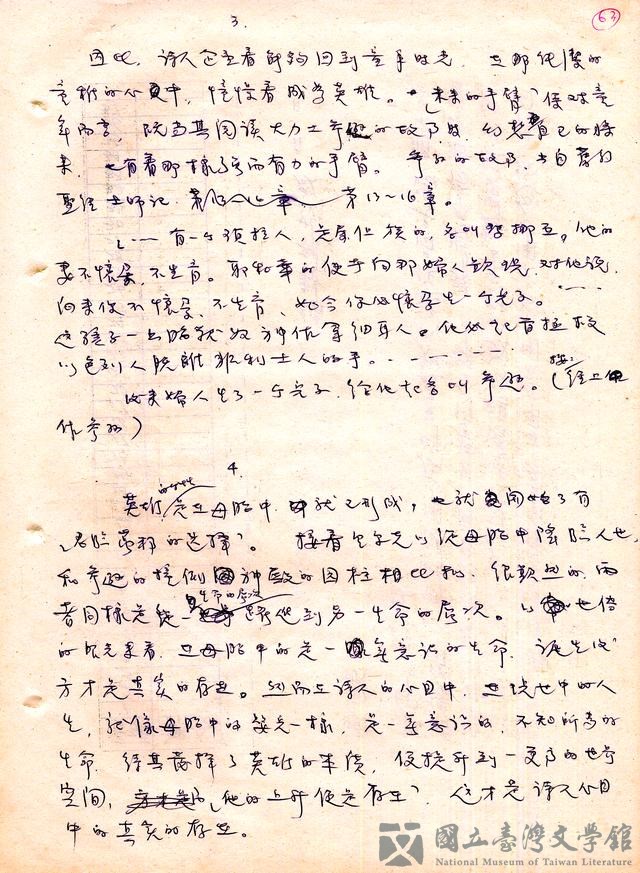 3.
63
因此，詩人企立着能夠回到童年時光，在那純潔的
童稚的心中，憧憬着成為英雄。「未來的手臂」係對童
年而言，既当其閱讀大力士參孫的故事時，幻想着自己的將
來，也有着那樣而有力的手臂。參孫的故事，出自舊約
聖經士師記 第13~16章。
「⋯⋯有一个瑣拉人，是屬但族的，名叫瑪挪亞，他的
妻不懷孕，不生育。耶和華的使者向那婦人顯現，对他說，
向来你不懷孕，不生育，如今你必懷孕生一个兒子。⋯⋯
這孩子一出胎就歸神作拿細耳人。他必起首拯救
以色列人脫離非利士人的手。⋯⋯
後来婦人生了一个兒子，給他起名叫參孫。（按：經上
作參孫）
4.
英雄的 是在母胎中 就已形成，也就開始了有
的選擇」。接着里尔克以從母胎中降臨人世，
和參孫的情例 神殿的圓柱相比擬，很顯然的，兩
者同樣是從一生命的層次 到另一生命的層次。以世俗
的眼光来看，在母胎中的是一無意識的生命，誕生後
方才是真实的存在。然而在詩人的心目中，在世中的人
生，就像母胎中的嬰兒一樣，是一無意識的，不知所為的
生命，待其選擇了英雄的本質，便提升到一更高的世界
空間，「他的上升便是存在」，這才是詩人心目
中的真实的存在。
國立臺灣文學館
National Museum of Taiwan Literature